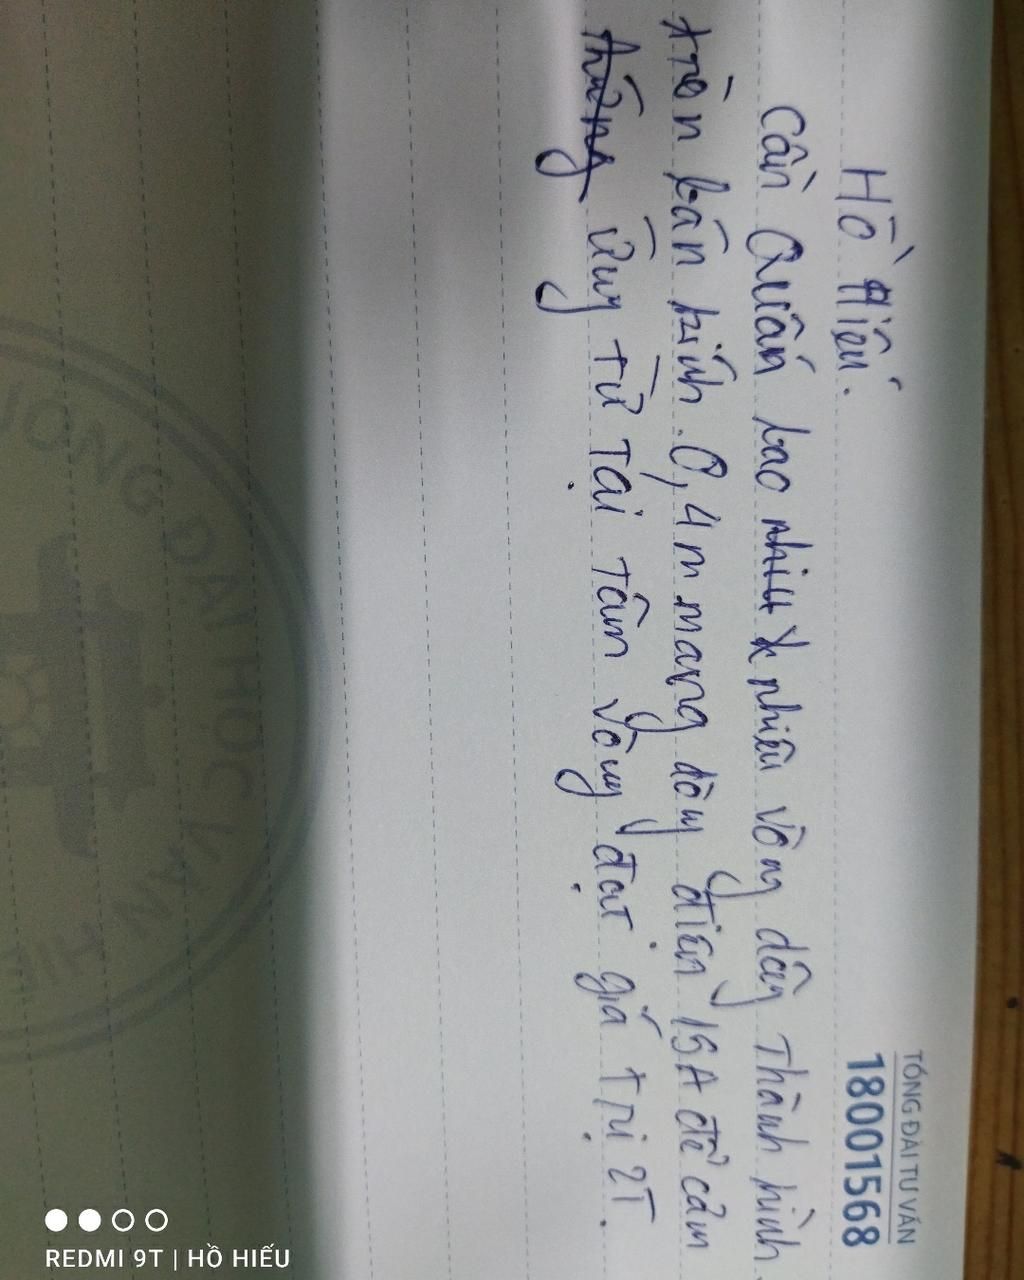 TỔNG ĐÀI TƯ VẤN
18001568
Hồ Hiếu.
Cần Quấn bao nhiu nhiêu vòng dây Thành hình
tròn bán kính 0,4m mang dòng điện 15A để cảm
thứng ứng từ Tại tâm vòng đạt giá trị 2T.
ƯƠNG ĐẠI HỌC VĂN HIẾ
REDMI 9T | HỒ HIẾU